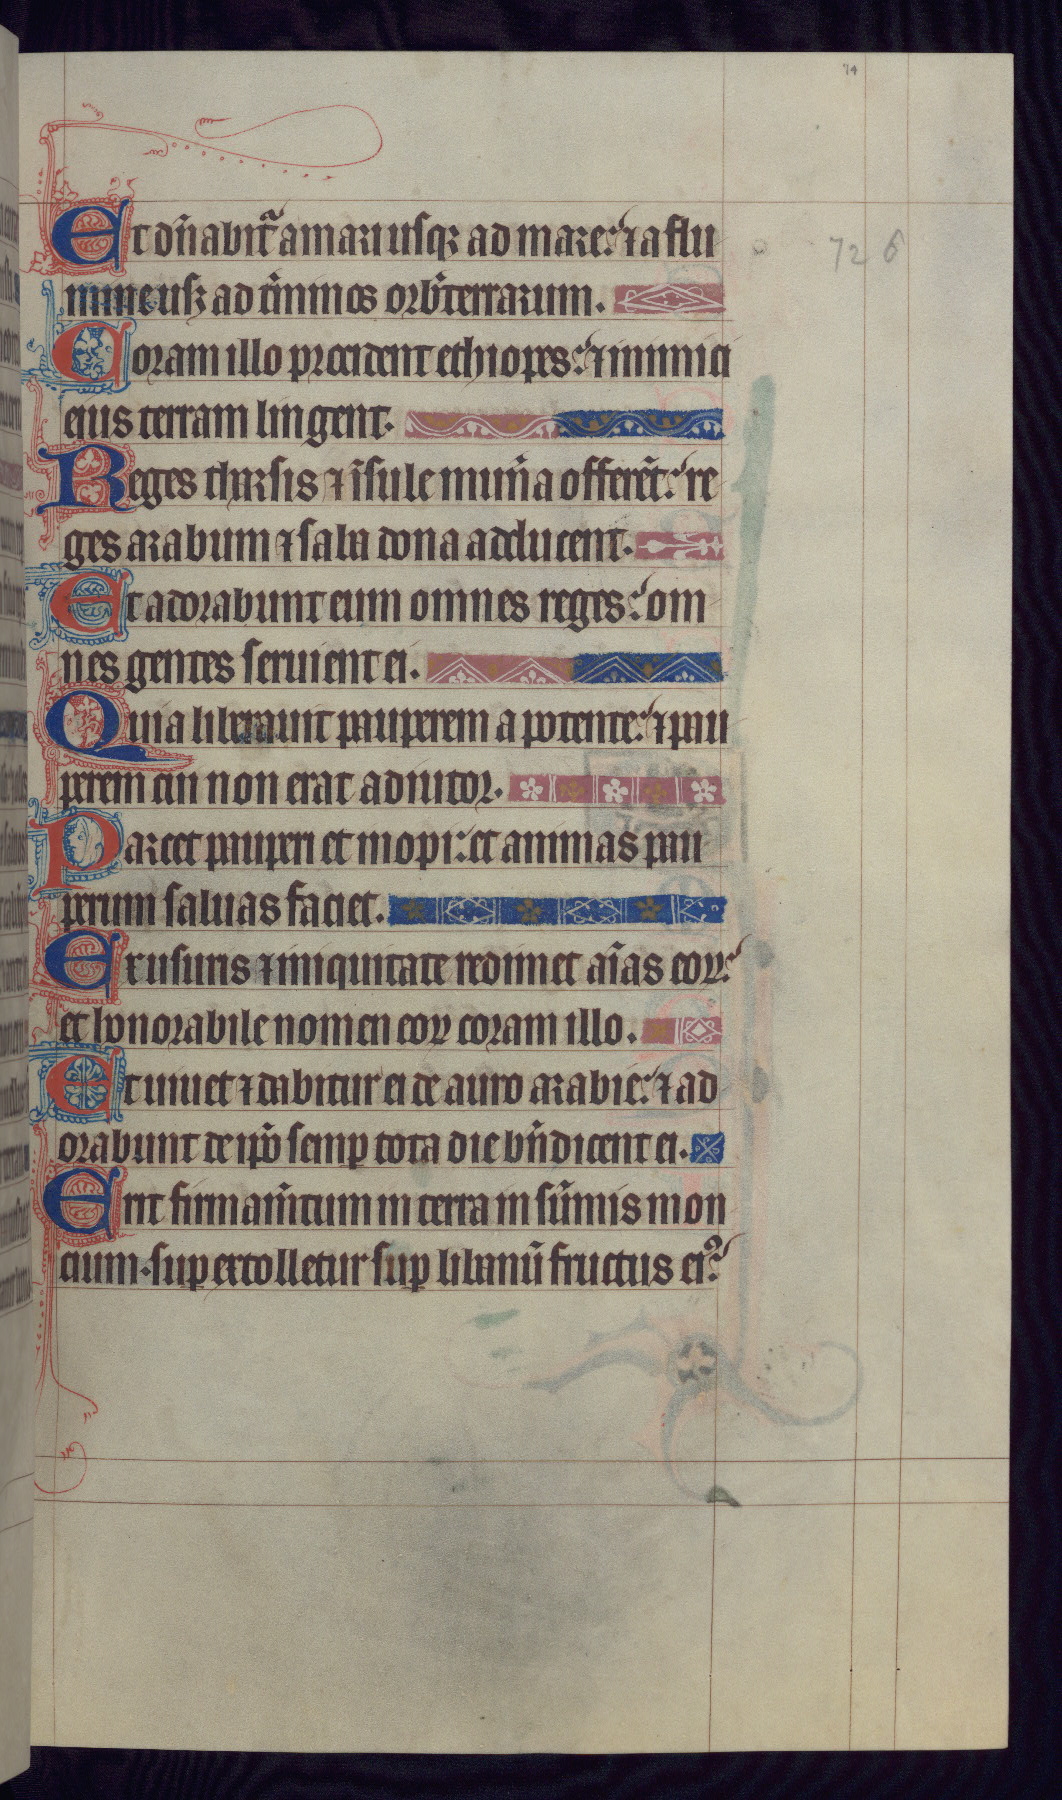 74
72 6
Et dn̄abit᷑ a mari usqꝫ ad mare: ⁊ a flu
mine usꝫ ad t̃minos orb̃ terrarum.
Coram illo procident ethiopes: ⁊ inimici
eius terram lingent.
Reges tharsis ⁊ ĩsule mun̄a offerẽt: re
ges arabum ⁊ saba dona adducent.
Et adorabunt eum omnes reges: om
nes gentes seruient ei.
Quia liberauit pauperem a potente: ⁊ pau
perem cui non erat adiutor.
Parcet pauperi et inopi: et animas pau
perum saluas faciet.
Ex usuris ⁊ iniquitate redimet aĩas eoꝝ:
et honorabile nomen eoꝝ coram illo.
Et uiuet ⁊ dabitur ei de auro arabie: ⁊ ad
orabunt de ip̃o semꝑ tota die bn̄dicent ei.
Erit firmam̄tum in terra in sūmis mon
cium. suꝑ extolletur suꝑ libanū fructus eiꝰ